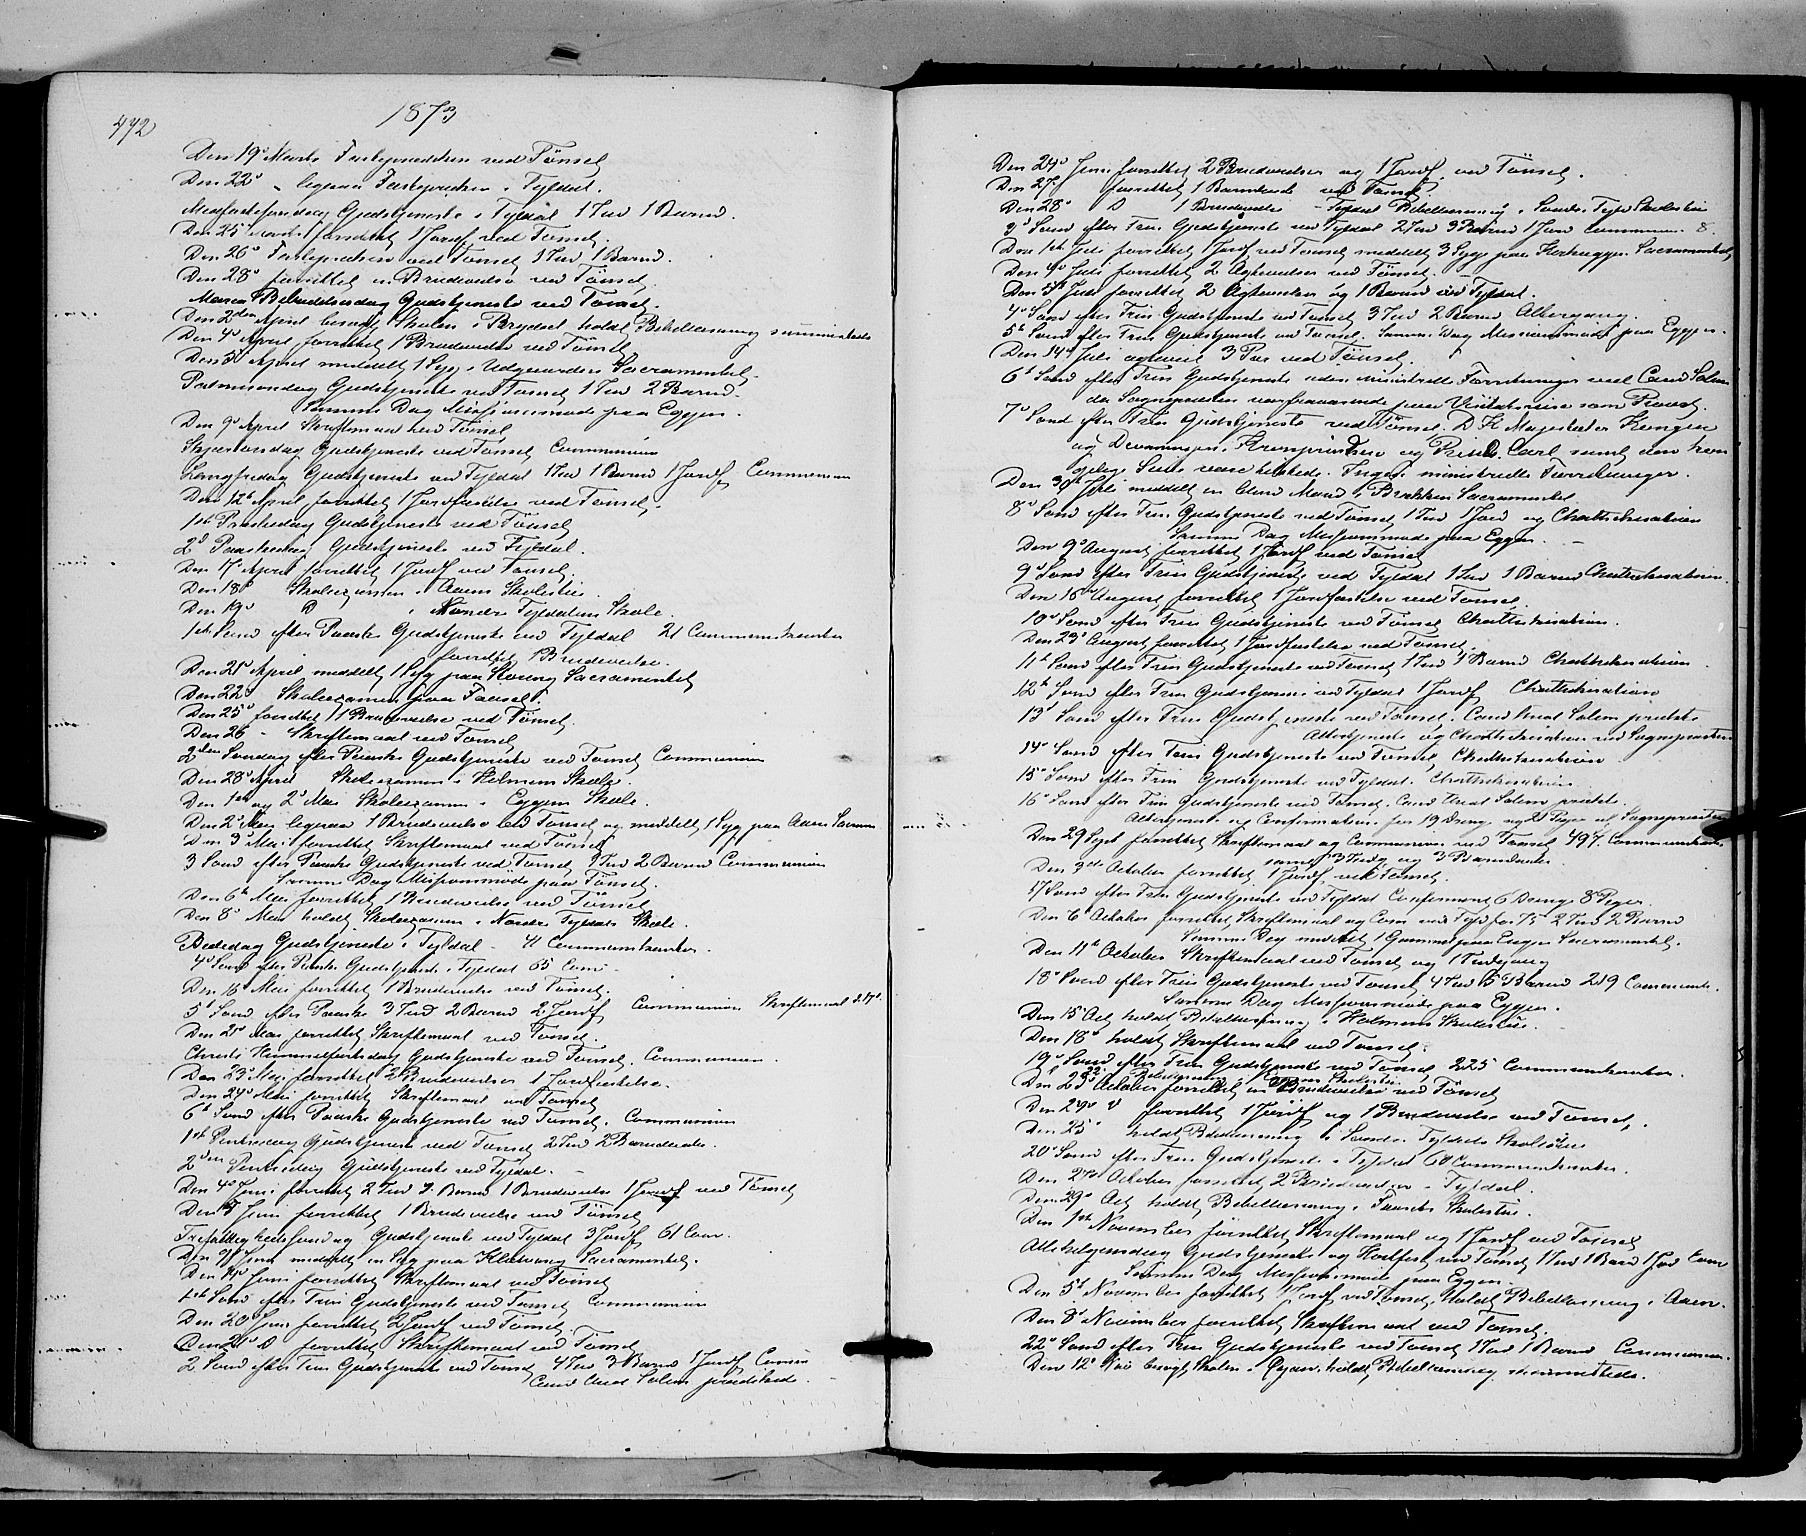 472
1873
Den 19de Marts Fasteprædiken ved Tönset
Den 22de " ligesaa Fasteprædiken i Tyldal.
Midfastesöndag Gudstjeneste i Tyldal 1 Ind 1 Barnd.
Den 25 Marts forrettet 1 Jordf ved Tönset.
Den 26de Fasteprædiken ved Tönset 1 Ind 1 Barnd.
Den 28de forrettet en Brudevielse ved Tönset
Maria Bebudelsesdag Gudstjeneste ved Tönset.
Den 2den April besögt Skolen i Brydal holdt Bibellæsning sammesteds
Den 4de April forrettet 1 Brudevielse ved Tönset
Den 5te April meddelt 1 Syg i Udgaarden Sacramentet.
Palmesöndag Gudstjeneste ved Tönset 1 Ind 2 Barnd.
Samme Dag Missionsmöde paa Eggen.
Den 9de April Skriftemaal ved Tönset
Skjærtorsdag Gudstjeneste ved Tönset Communion
Langfredag Gudstjeneste ved Tyldal 1 Ind 1 Barnd 1 Jordf Communion
Den 12te April forrettet 1 Jordfæstelse ved Tönset.
1ste Paaskedag Gudstjeneste ved Tönset
2d Paaskedag Gudstjeneste ved Tyldal.
Den 17de April forrettet 1 Jordf ved Tönset.
Den 18de Skoleexamen i Aaens Skolestue.
Den 19de D i Nordre Tyldalens Skole
1ste Sönd efter Paaske Gudstjeneste ved Tyldal 21 Communikanter
forrettet 1 Brudevielse.
Den 21de April meddelt 1 Syg paa Sacramentet
Den 22de Skoleexamen paa Fauset.
Den 25de forrettet 1 Brudevielse ved Tönset.
Den 26 - Skriftemaal ved Tönset
2den Söndag efter Paaske Gudstjeneste ved Tönset Communion
Den 28de April Skoleexamen i Holmens Skole.
Den 1ste og 2de Mai Skoleexamen i Eggens Skole.
Den 2de Mai ligesaa 1 Brudevielse ved Tönset og meddelt 1 Syg paa Aaen Sacram
Den 3de Mai forrettet Skriftemaal ved Tönset
3 Sönd efter Paaske Gudstjeneste ved Tönset 3 Ind 2 Barnd Communion
Samme Dag Missionsmöde paa Tönset.
Den 6te Mai forrettet 1 Brudevielse ved Tönset
Den 8de Mai holdt Skoleexamen i Nordre Tyldals Skole.
Bededag Gudstjeneste i Tyldal - 41 Communikanter.
4de Sönd efter Paaske Gudstjeneste i Tyldal 65 Com
Den 16 Mai forrettet 1 Brudevielse ved Tönset.
5te Sönd efter Paaske 3 Ind 2 Barnd 2 Jordf Communion Skriftemaal d. 17de.
Den 21de Mai forrettet Skriftemaal ved Tönset.
Christi Himmelfartsdag Gudstjeneste ved Tönset. Communion.
Den 23 Mai forrettet 2 Brudevielser 1 Jordfæstelse.
Den 24de Mai forrettet Skriftemaal ved Tönset
6te Sönd efter Paaske Gudstjeneste ved Tönset. Communion
1ste Pintsedag Gudstjeneste ved Tönset 2 Ind 2 Barnedaab.
2den Pintsedag Gudstjeneste ved Tyldal.
Den 4de Juni forrettet 2 Ind 2 Barnd 1 Brudevielse 1 Jordf ved Tönset
Den 5 Juni forrettet 1 Brudevielse ved Tönset
Trefoldighedssöndag Gudstjeneste ved Tyldal 3 Jordf 61 Com.
Den 9de Juni meddelt en Syg paa Sacramentet.
Den 14de Juni forrettet Skriftemaal ved Tönset
1ste Sönd efter Trin Gudstjeneste ved Tönset Communion
Den 20 Juni forrettet 2 Jordf ved Tönset.
Den 21de D forrettet Skriftemaal ved Tönset
2 Sönd efter Trin Gudstjeneste ved Tönset 4 Ind 3 Barnd 1 Jordf Comm
Cand Knut Solem prædikede.
Den 24de Juni forrettet 2 Brudevielser og 1 Jordf. ved Tönset.
Den 27de forrettet 1 Barnedaab ved Tönset
Den 28de D 1 Brudevielse - Tyldal Bibellæsning i Söndre Tyld Skolestue
3de Sönd efter Trin Gudstjeneste ved Tyldal 2 Ind 3 Barnd 1 Jord Commun. 8.
Den 1ste Juli forrettet 1 Jordf ved Tönset meddelt 3 Syge paa Sacramentet
Den 4de Juli forrettet 2 Ægtevielser ved Tönset.
Den 5te Juli forrettet 2 Ægtevielser og 1 Barnd ved Tyldal.
4de Sönd efter Trin Gudstjeneste ved Tönset 3 Ind 2 Barnd Altergang.
5te Sönd efter Trin Gudstjeneste ved Tönset. Samme Dag Missionsmöde paa Eggen.
Den 14de Juli ægteviet 3 Par ved Tönset.
6te Sönd efter Trin Gudstjeneste uden ministrelle Forretninger ved Cand Solem
da Sognepræsten var fraværende paa Visitatsreise som Provst.
7de Sönd efter Trin Gudstjeneste ved Tönset. D H Majestæter Kongen
og Dronningen, Kronprindsen og Prinds Carl samt den
Suite vare tilstede. Ingen ministrelle Forretninger.
Den 30te Juli meddelt en blind Mand i Brekken Sacramentet
8de Sönd efter Trin Gudstjeneste ved Tönset 1 Ind 1 Jord og Chatechisation
Samme Dag Missionsmöde paa Eggen.
Den 9de August forrettet 1 Jordf ved Tönset
9de Sönd efter Trin Gudstjeneste ved Tyldal 1 Ind 1 Barnd Chatechisation.
Den 16de August forrettet 1 Jordfæstelse ved Tönset.
10de Sönd efter Trin Gudstjeneste ved Tönset Chatechisation.
Den 23de August forrettet 1 Jordfæstelse ved Tönset.
11te Sönd efter Trin Gudstjeneste ved Tönset 1 Ind 1 Barnd Chatechisation
12te Sönd efter Trin Gudstjeneste ved Tyldal 1 Jordf Chatechisation
13de Sönd efter Trin Gudstjeneste ved Tönset. Cand Knut Solem prædikte
Altertjeneste og Chatechisation ved Sognepræsten
14de Sönd efter Trin Gudstjeneste ved Tönset Chatechisation
15de Sönd efter Trin Gudstjeneste ved Tyldal. Chatechisation
16de Sönd efter Trin Gudstjeneste ved Tönset. Cand Knut Solem prædikte.
Altertjeneste og Confirmation for 19 Drenge og 21 Piger af Sognepræsten
Den 29 Sept forrettet Skriftemaal og Communion ved Tönset 497. Communikanter
samt 3 Indg og 3 Barnedaab.
Den 3die October forrettet 1 Jordf. ved Tönset.
17 Sönd efter Trin Gudstjeneste ved Tyldal Confirmeret 6 Drenge 8 Piger.
Den 6 October forrettet Skriftemaal og Com ved Tyld for 75 2 Ind 2 Barnd
Samme Dag meddelt 1 Gammel paa Sacramentet.
Den 11te October Skriftemaal ved Tönset og 1 Indgang
18de Sönd efter Trin Gudstjeneste ved Tönset 4 Ind 5 Barnd 219 Communik.
Samme Dag Missionsmöde paa Eggen.
Den 15de Oct holdt Bibellæsning i Holmens Skolestue.
Den 18de holdt Skriftemaal ved Tönset.
19de Sönd efter Trin Gudstjeneste ved Tönset 225 Communikanter.
Bibellæsning i Skolestue
Den 23de October forrettet en Brudevielse ved Tönset
Den 24de D forrettet 1 Jordf og 1 Brudevielse ved Tönset.
Den 25de holdt Bibellæsning i Söndre Tyldals Skolestue
20de Sönd efter Trin Gudstjeneste i Tyldal 60 Communikanter.
Den 27de October forrettet 2 Brudevielser i Tyldal.
Den 29de Oct holdt Bibellæsning i Fausets Skolestue.
Den 1ste November forrettet Skriftemaal og 1 Jordf ved Tönset
Allehelgensdag Gudstjeneste og Höstfest ved Tönset 1 Ind 1 Barnd 1 Jord Com
Samme Dag Missionsmöde paa Eggen.
Den 5te November forrettet 1 Jordf ved Tönset, holdt Bibellæsning i Aaen.
Den 8de November forrettet Skriftemaal ved Tönset.
22de Sönd efter Trin Gudstjeneste ved Tönset 1 Ind 1 Barnd Communion.
Den 12te Nov besögt Skolen i holdt Bibellæsning sammesteds.